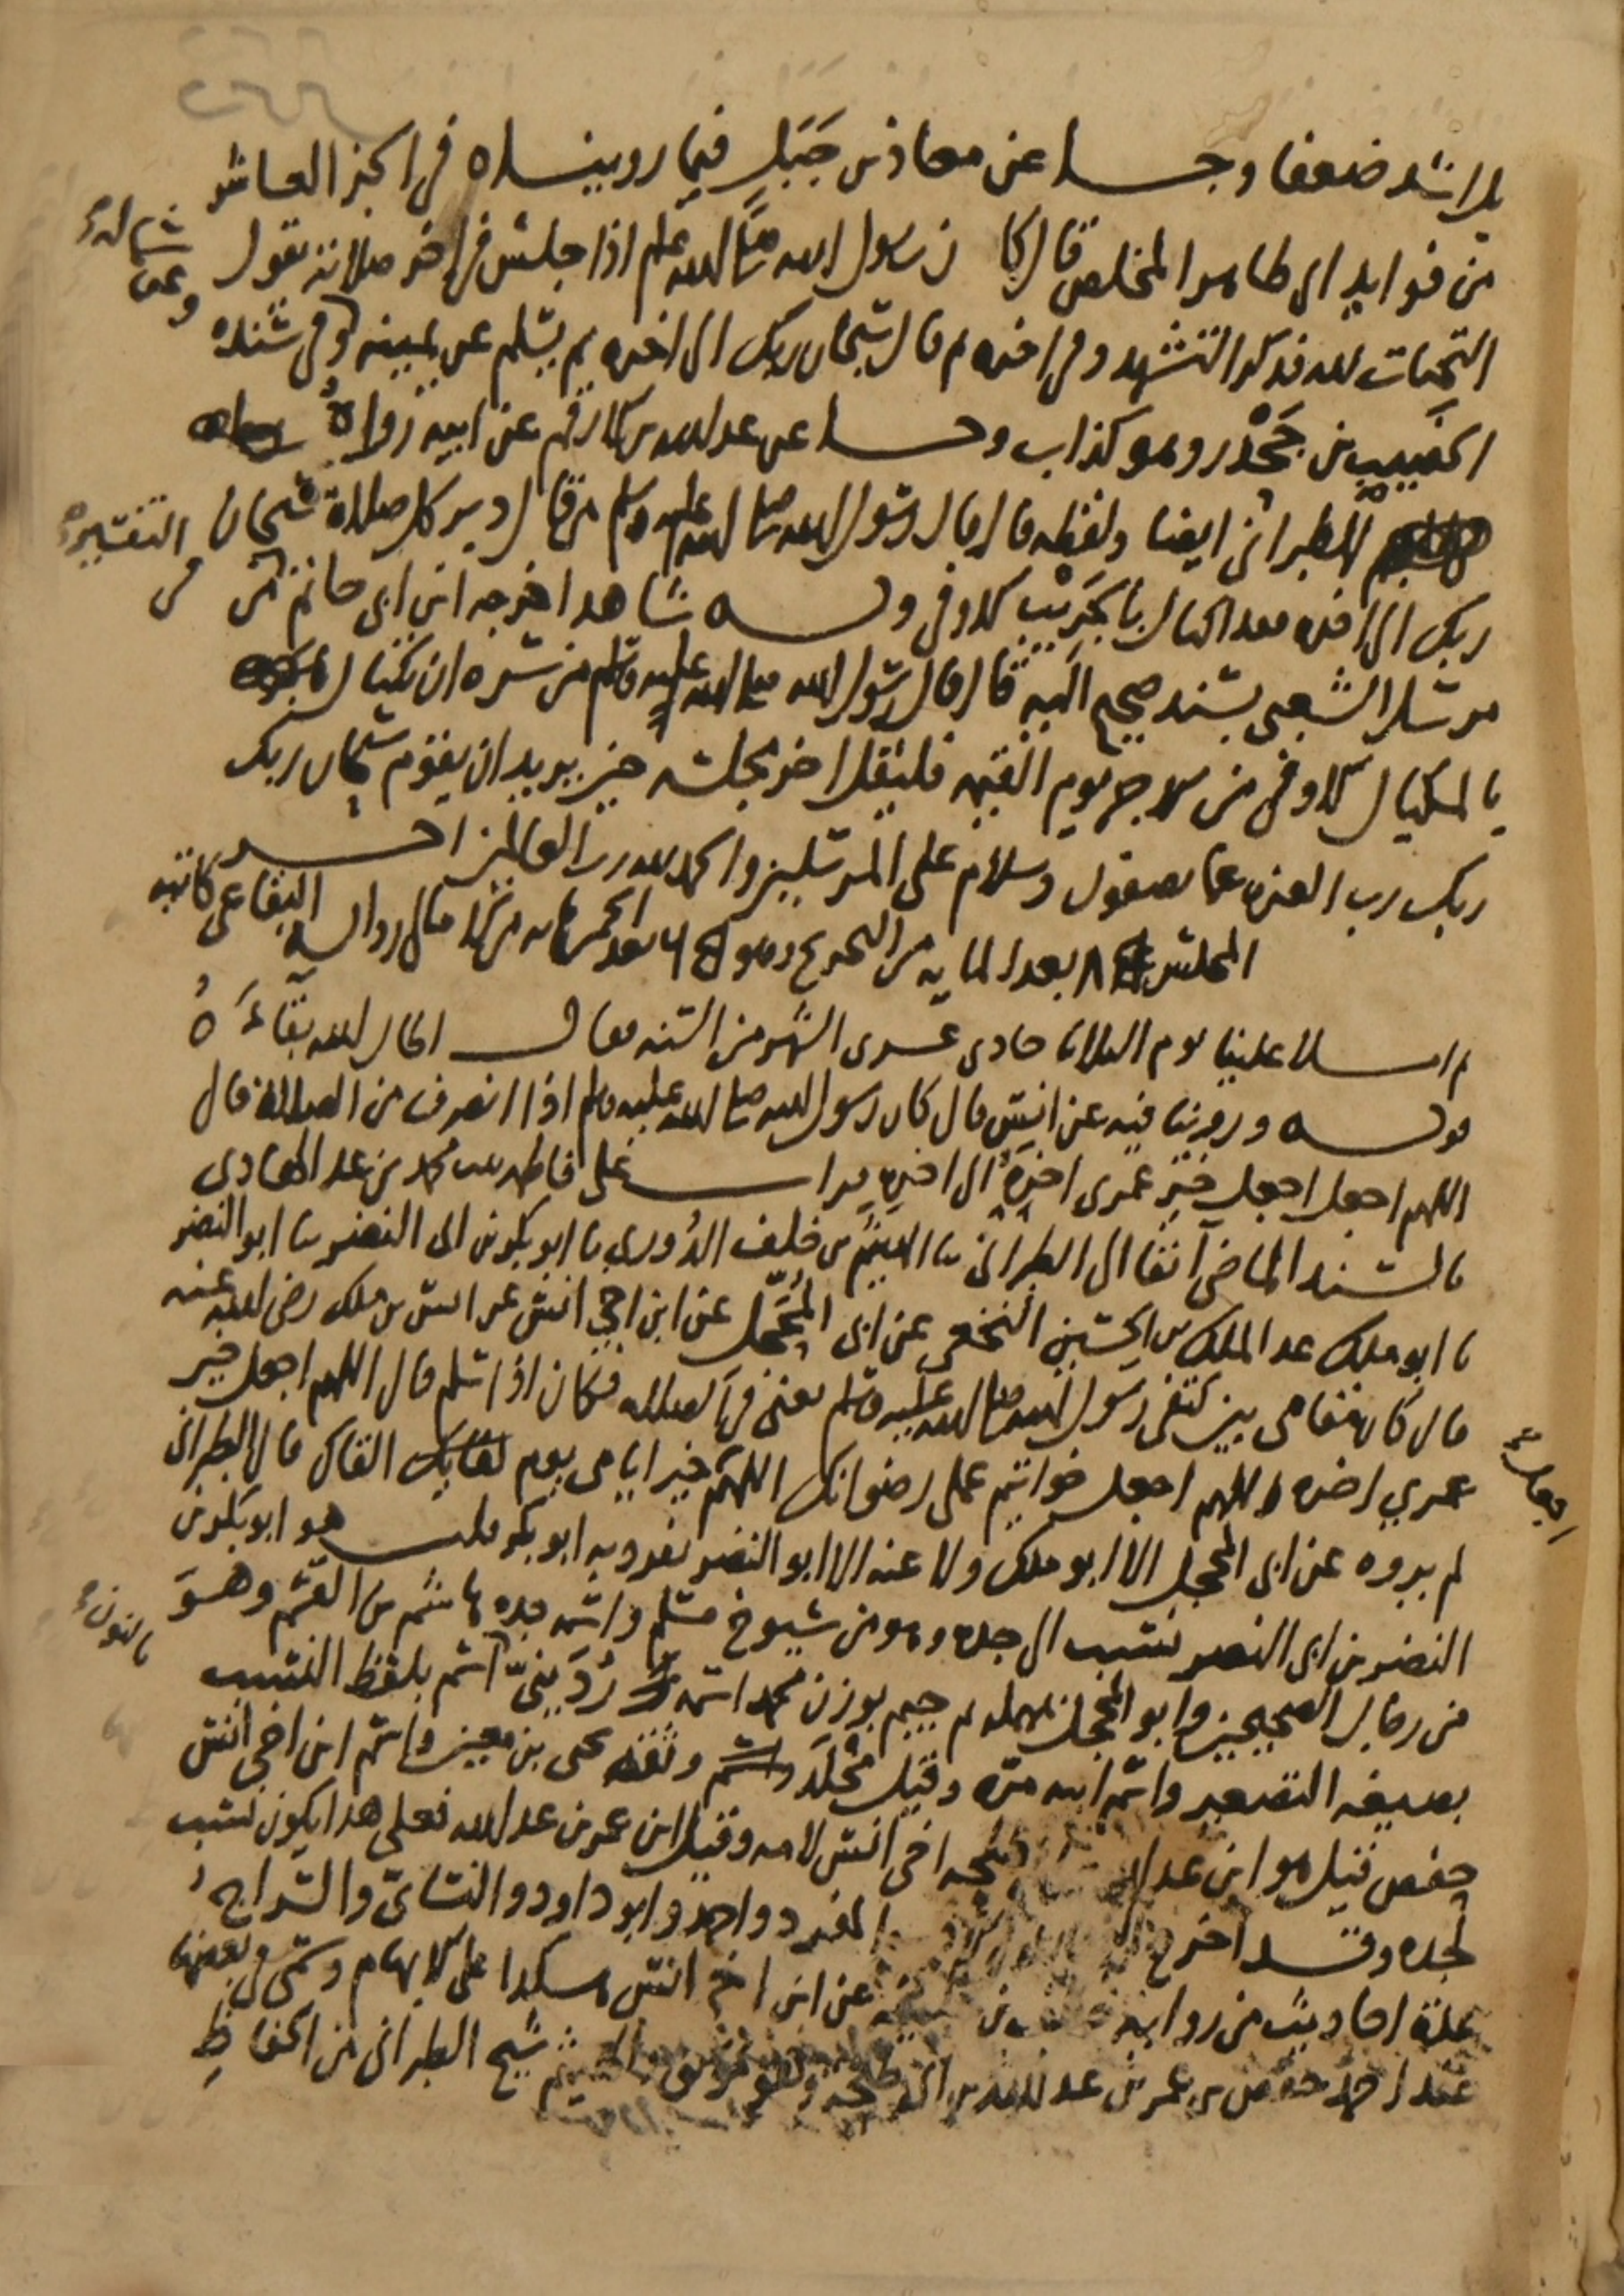 بل اشد ضعفا وجا عن معاذ بن جَبَل فيما رويناه في الجز العاشر
من فوايد ابي طاهر المخلص قال كان رسول الله صلى الله عليه وسلم اذا جلس في اخر صلاته يقول
التحيات لله فذكر التشهد وفي اخره ثم قال سبحان ربك الى اخره ثم يسلم عن يمينه وفي سنده
وعن شماله
الخصيب بن جَحْدر وهو كذاب وجا عن عبد الله بن ارقم عن ابيه رواهُ
الطبراني ايضا ولفظه قال قال رسول الله صلى الله عليه وسلم من قال دبر كل صلاة سبحان
ربك الى اخره فقد اكتال بالجَرِيْبِ الاوفى وله شاهد اخرجه ابن ابي حاتم في التفسير من
مرسل الشعبي بسند صحيح اليه قال قال رسول الله صلى الله عليه وسلم من سره ان يكتال
بالمكيال الاوفى من الاجر يوم القيمة فليقل اخر مجلسه حين يريد ان يقوم سبحان ربك
ربك رب العزة عما يصفون وسلام على المرسلين والحمد لله رب العالمين اخر
المجلس بعد المايه من التخريج وهو بعد الخمس مايه من الامالي رواية البقاعي كاتبه
ثم املا علينا يوم الثلاثا حادي عشري الشهر من السنة فقال اطال الله بقاءَهُ
قوله وروينا فيه عن انس قال كان رسول الله صلى الله عليه وسلم اذا انصرف من الصلاة قال
اللهم اجعل اجعل خير عمري اخرَهُ الى اخره قرات على فاطمه بنت محمد بن عبد الهادي
بالسند الماضي آنفا الى الطبراني ثنا الهيثم بن خلف الدُوري ثنا ابو بكر بن ابي النضر ثنا ابو النضر
ثنا ابو ملك عبد الملك بن الحسين النخعي عن ابي المُحَجَّل عن ابن اخي انس عن انس بن ملك رضي الله عنه
قال كان مقامي بين كتفي رسول الله صلى الله عليه وسلم يعني في الصلاه فكان اذا سلم قال اللهم اجعل خير
عمري اخره اللهم اجعل خواتيم عملي رضوانك اللهم خير ايامي يوم القاك قال الطبراني
اجعل
لم يروه عن ابي المحجل الا ابو ملك ولا عنه الا ابو النضر تفرد به ابو بكر قلت هو ابو بكر بن
النضر بن ابي النضر نسب الى جده وهو من شيوخ مسلم واسم جده هاشم بن القسم وهو
من رجال الصحيحين وابو المحجل بمهمله ثم جيم بوزن محمد اسمه رُدَيْنيّ اسم بلفظ النسب
بالنون
بصيغه التصغير واسم ابيه مره وقيل مخْلَد وثقه يحيى بن معين واسم ابن اخي انس
حفص قيل هو ابن عبد الله طلحه اخي انس لامه وقيل ابن عمر بن عبد الله فعلى هذا يكون نسب
لجده وقد اخرج المفرد واحمد وابو داود والنسائيّ والسراج
عدة احاديث من رواية خليفه عن ابن اخي انس هكذا على الابهام وسمي في بعضها
عند احمد حفص بن عمر بن عبد الله بن ابي طلحه وهو موثق الهيثم شيخ الطبراني من الحفاظِ